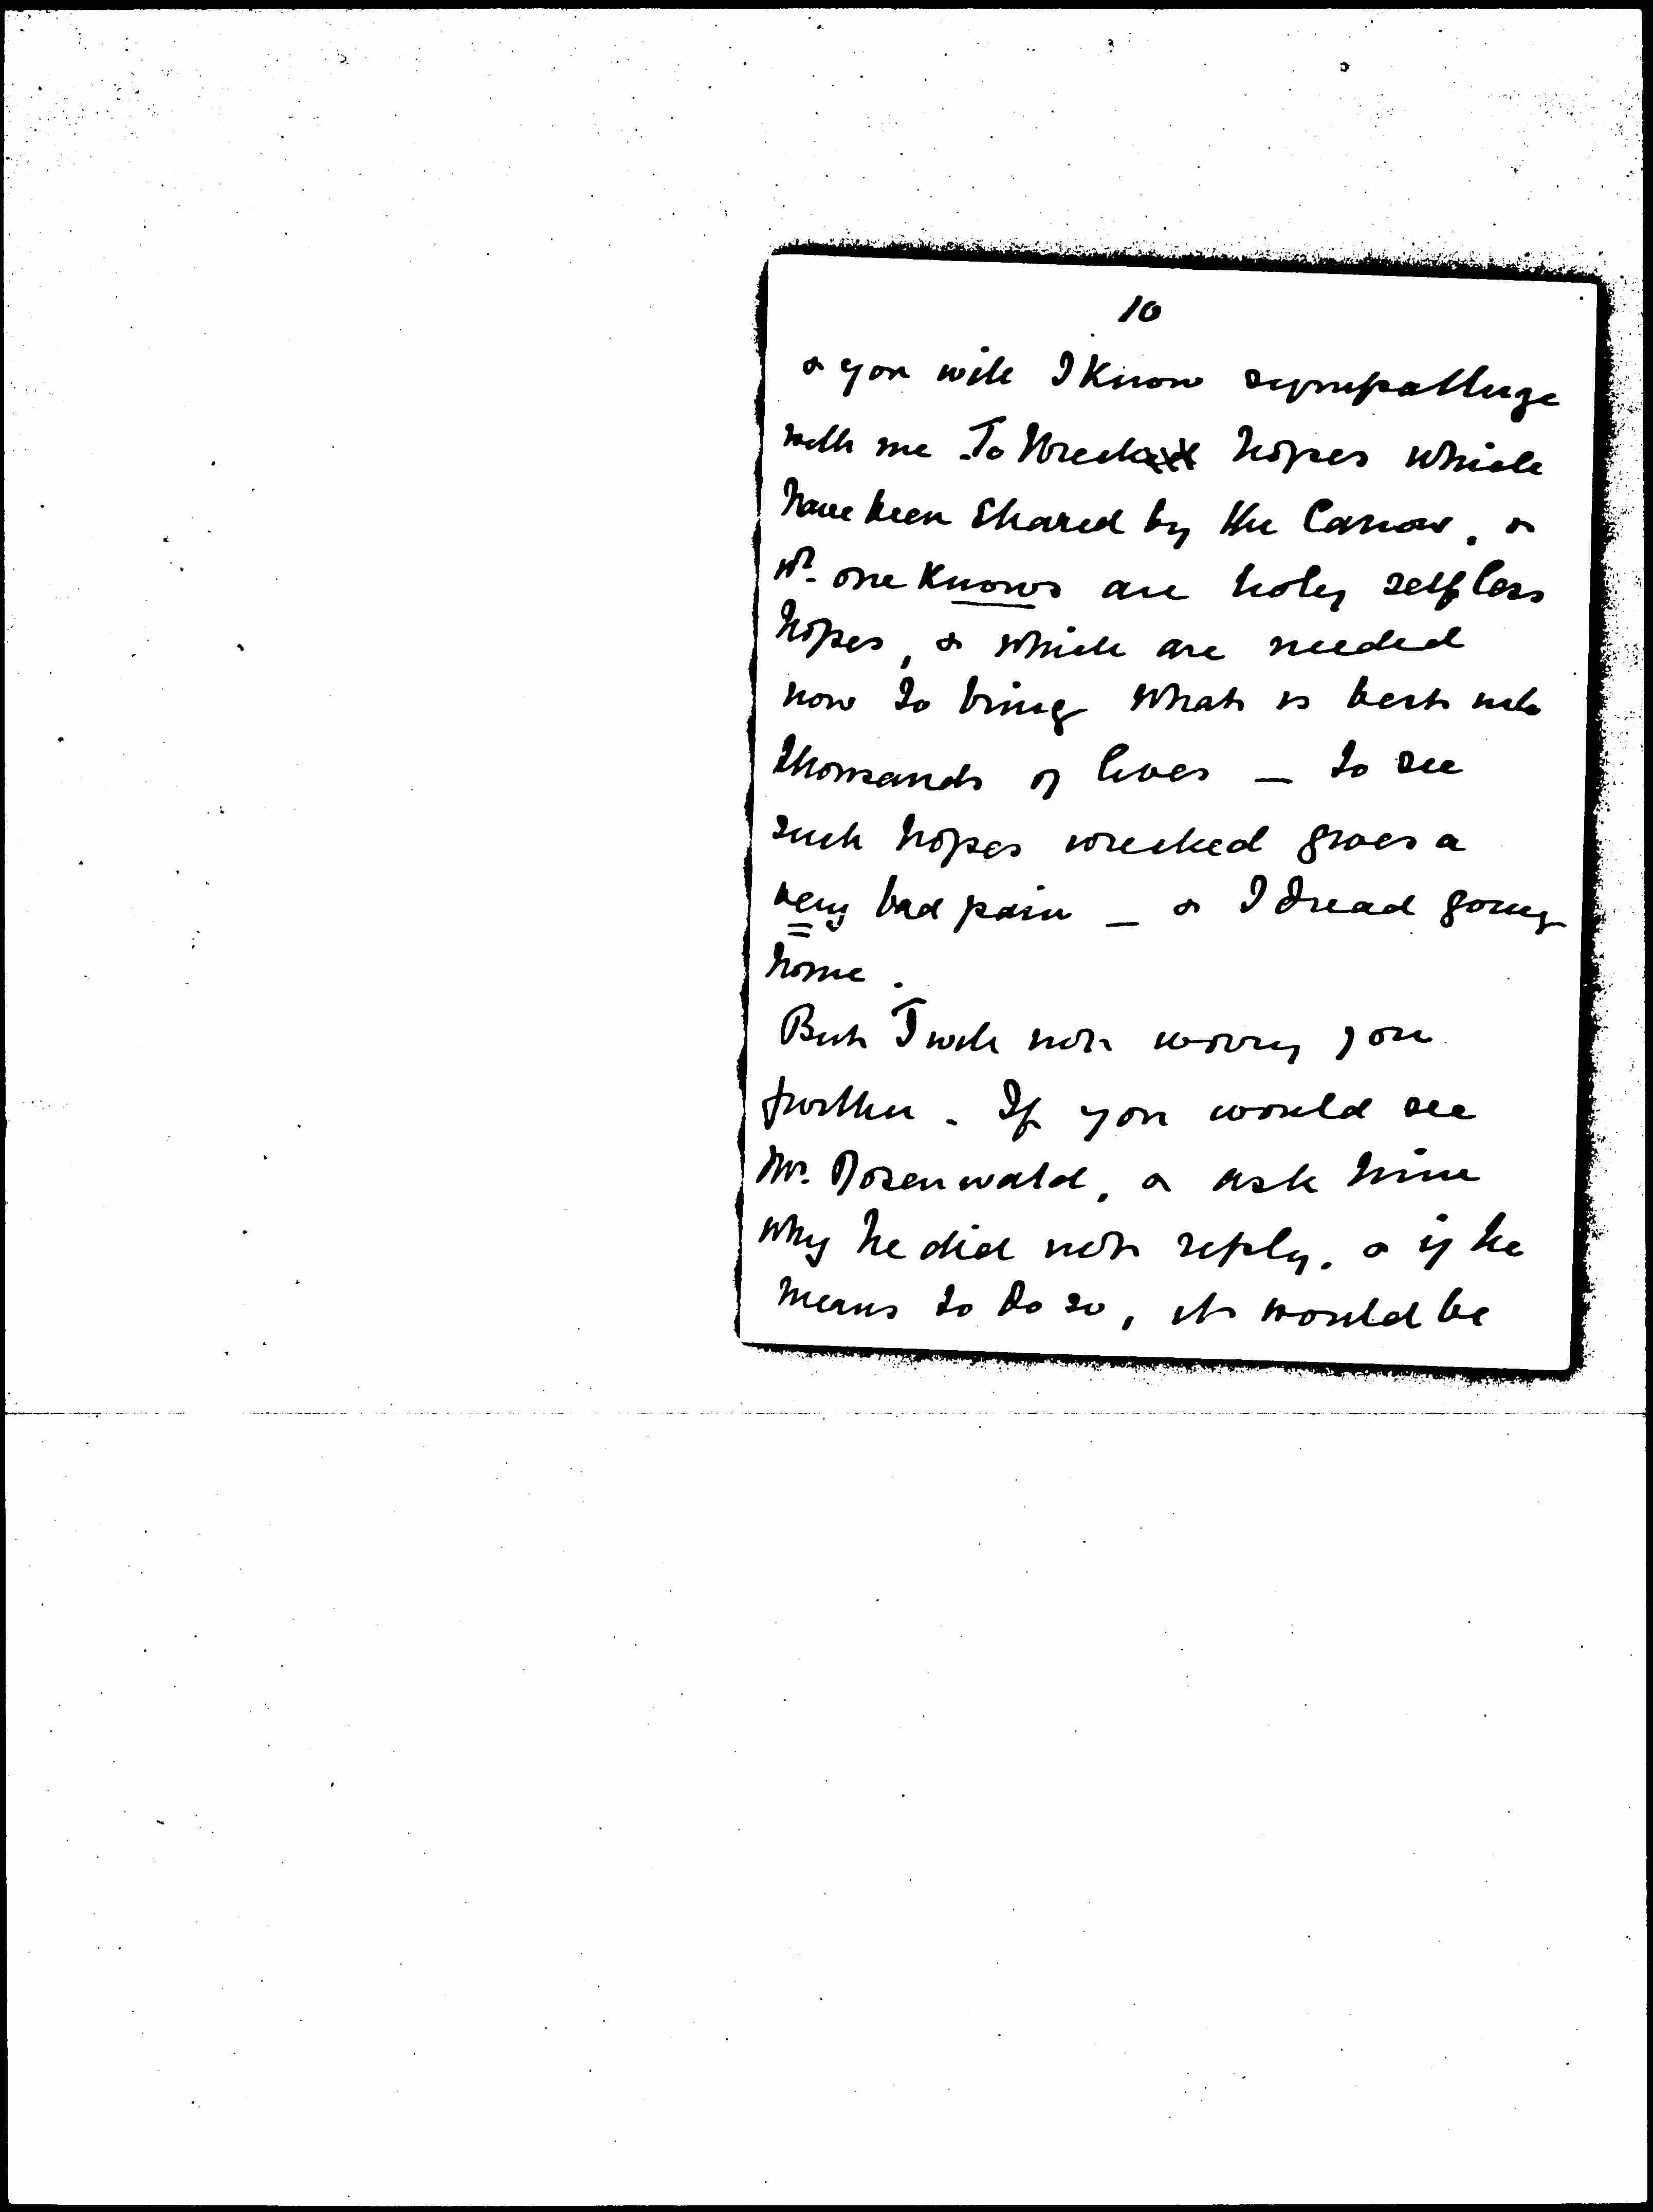 10
& you will I know sympathize
with me. To Wreck hopes which
have been Shared by the Canon, &
wh. one knows are holy selfless
hopes, & which are needed
now to bring what is best into
thousands of lives — to see
such hopes wrecked gives a
very bad pain — & I dread going
home.
But I will not worry you
further. If you would see
Mr. Rosenwald, & ask him
why he did not reply, & if he
means to do so, it would be